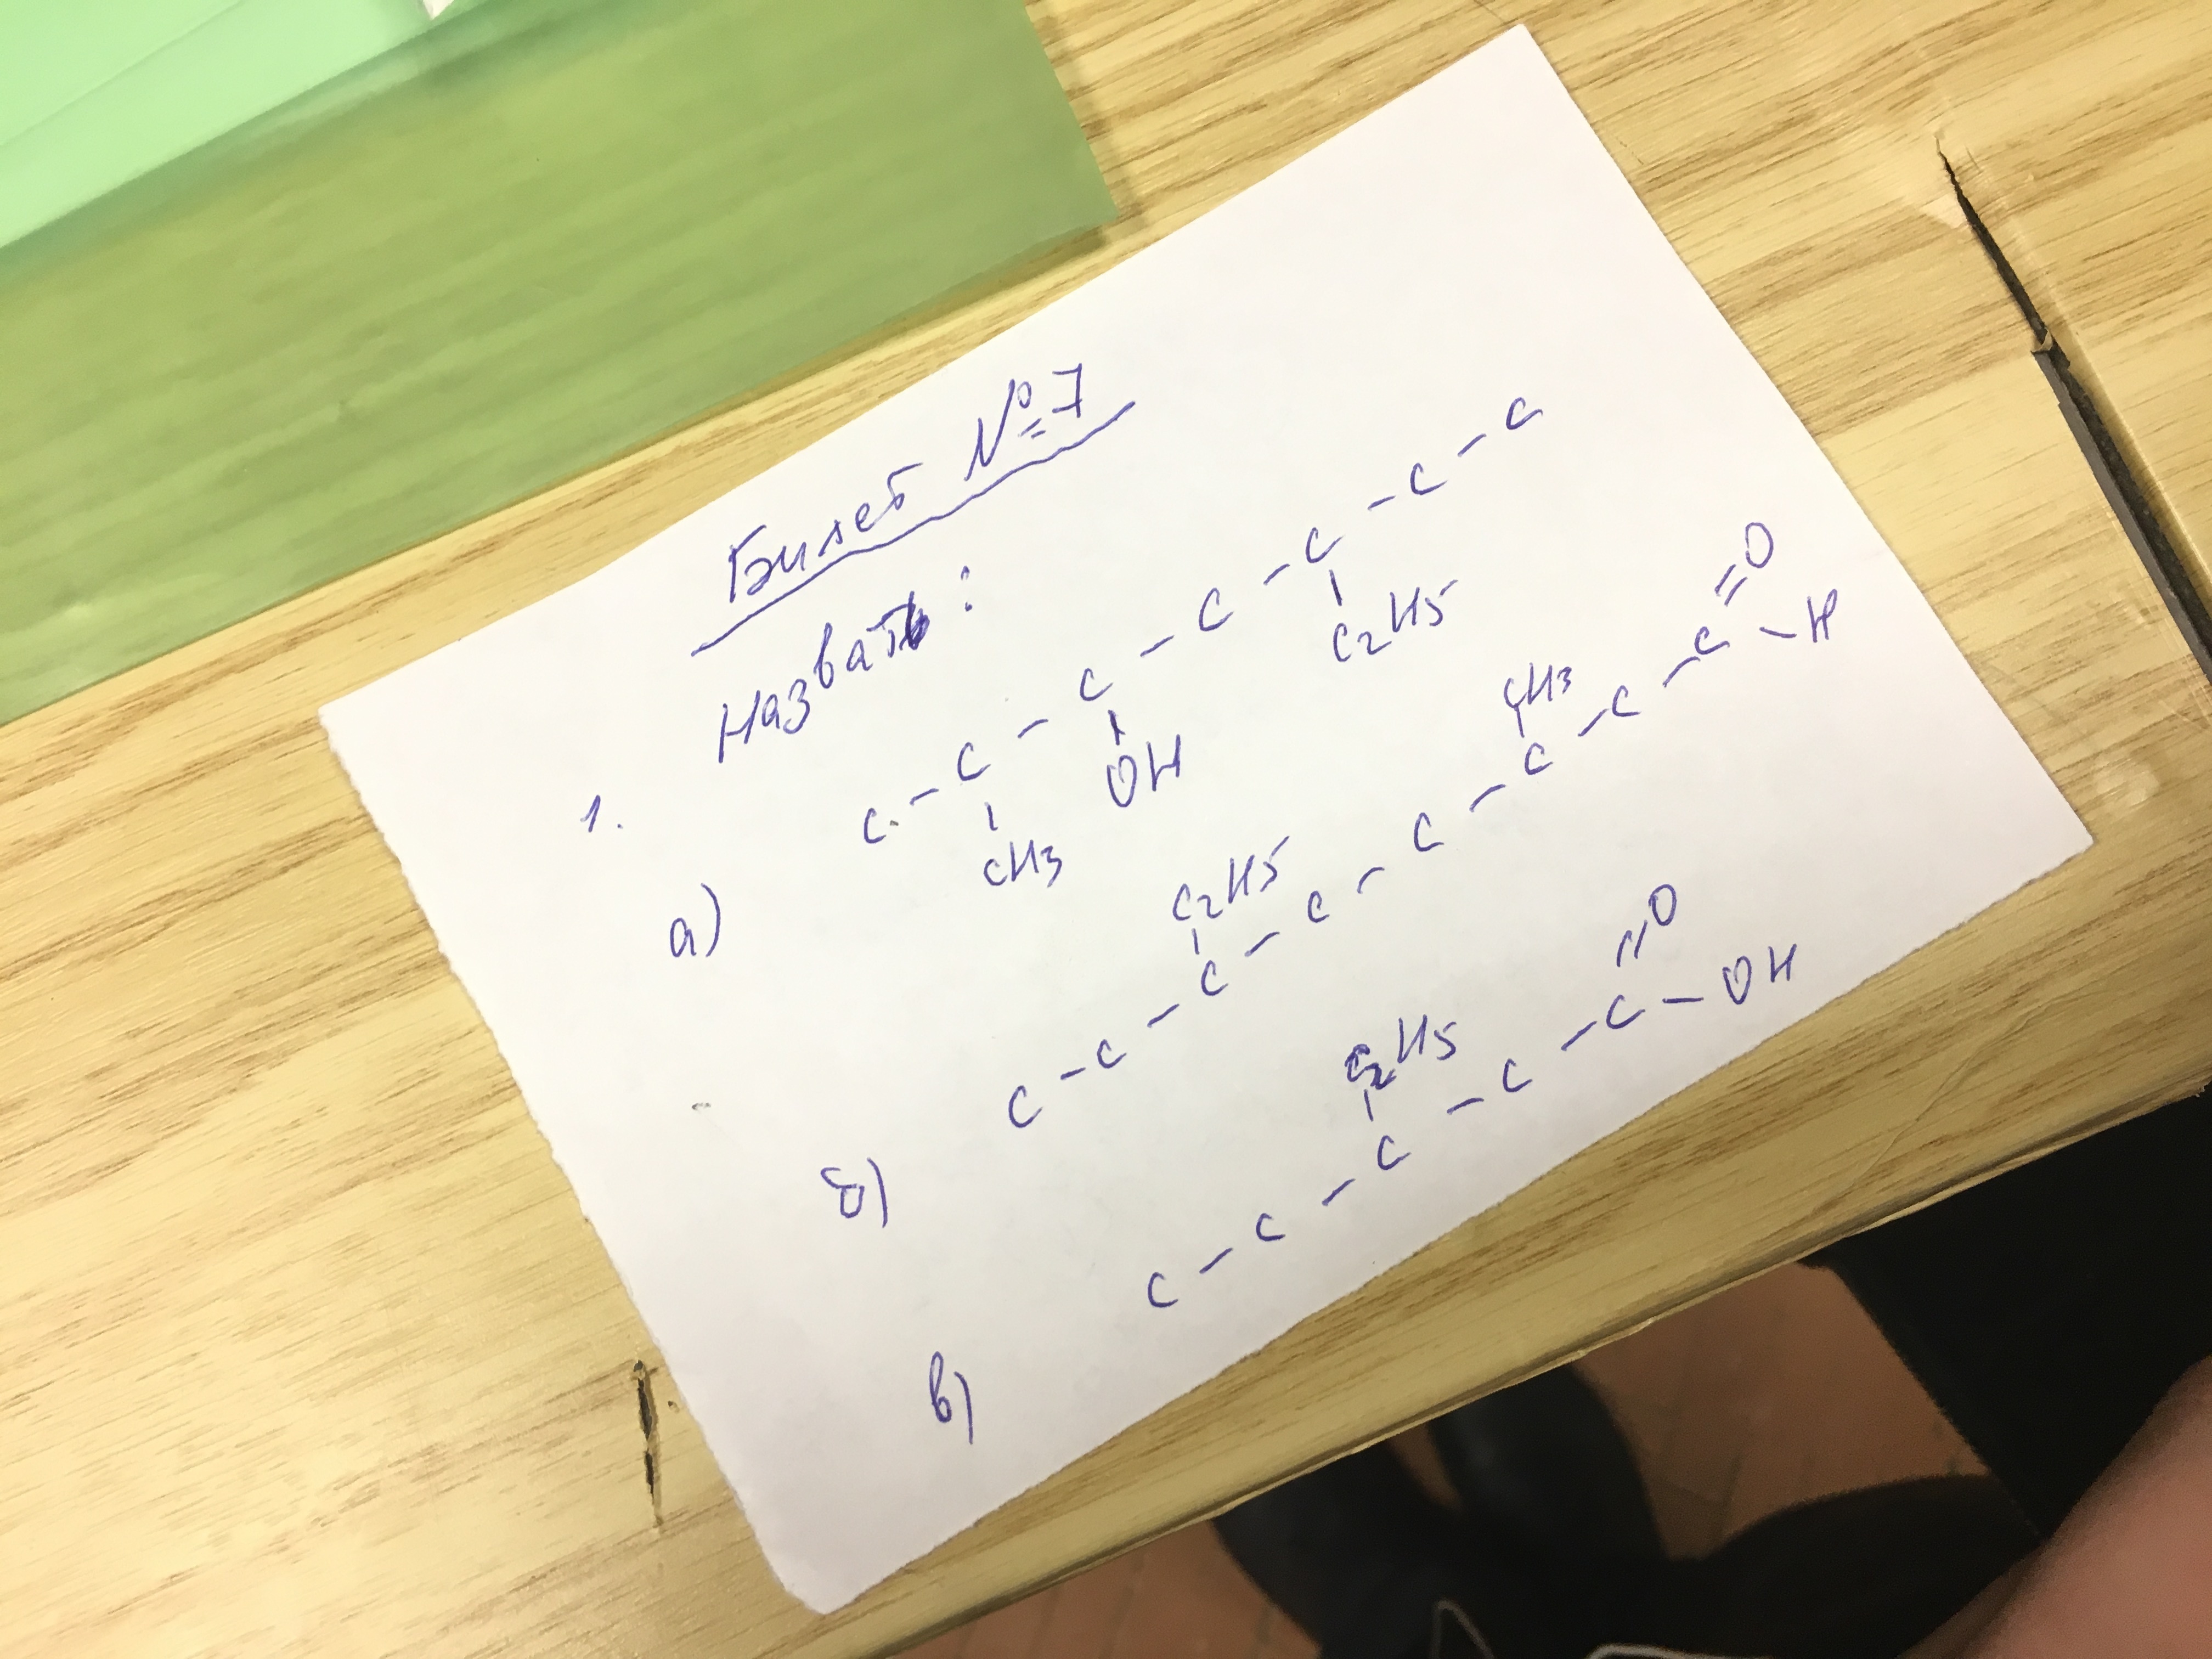 Билет №7
1. Назвать:
а) C - C - C - C - C - C - C
CH3 OH C2H5
C2H5 CH3
б) C - C - C - C - C - C - C - C = O - H
C2H5
в) C - C - C - C - C = O - OH